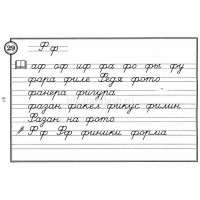 29
Ф ф
аф оф иф фа фо фы фу
фара филе Федя фото
фанера фигура
фазан факел фикус филин
Фазан на фото
Ф ф Фф финики форма